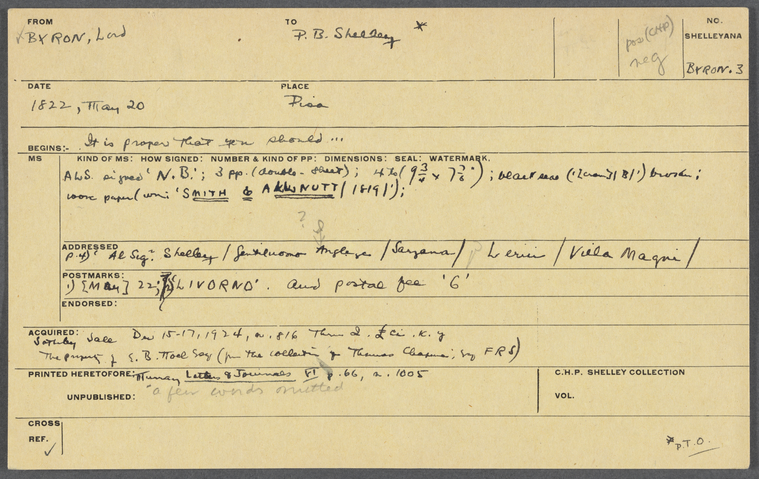 FROM TO NO.
BYRON, Lord P. B. Shelley * pos (CHP) SHELLEYANA
neg BYRON. 3
DATE PLACE
1822, May 20 Pisa
BEGINS:- It is proper that you should...
MS KIND OF MS: HOW SIGNED: NUMBER & KIND OF PP: DIMENSIONS: SEAL: WATERMARK.
ALS. signed 'N.B.'; 3 pp. (double-sheet); 4to (9 3/4 x 7 7/8"); black seal broken;
wove paper (wm: 'SMITH & ALLNUTT / 1819/');
?
ADDRESSED p.4) 'Al Sigr. Shelley / Gentiluomo Inglese / Sarzana / Lerici / Villa Magni /
POSTMARKS: 1) [May] 22; 2) 'LIVORNO'. and postal fee '6'
ENDORSED:
ACQUIRED: Sotheby Sale Dec 15-17, 1924, n. 816
The property of E. B. Noel Esq (from the collection of Thomas Chapman, Esq FRS)
PRINTED HERETOFORE: Murray Letters & Journals VI p. 66, n. 1005 C.H.P. SHELLEY COLLECTION
UNPUBLISHED: "a few words omitted VOL.
CROSS
REF. * P.T.O.